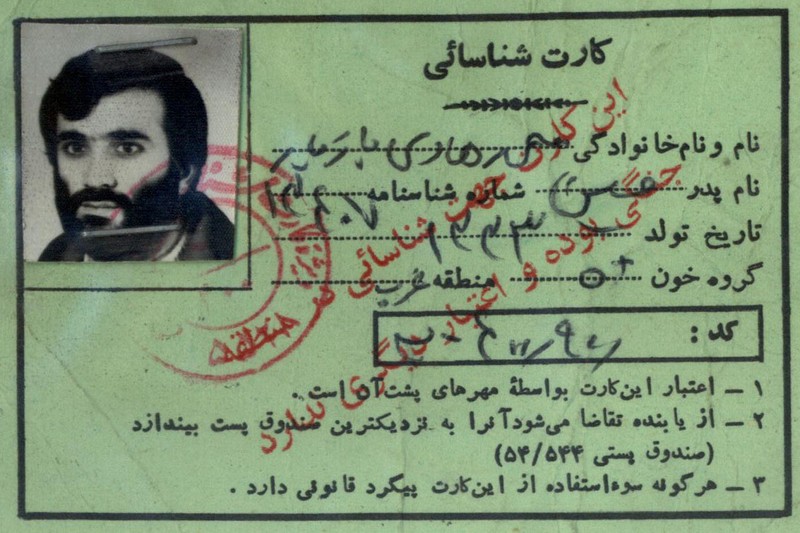 کارت شناسائی
نام و نام خانوادگی
نام پدر حسن شماره شناسنامه
تاریخ تولد ۱۳۳۳
گروه خون O+ منطقه غرب
کد :
۱ ــ اعتبار این کارت بواسطهٔ مهرهای پشت آن است .
۲ ــ از یابنده تقاضا می‌شود آنرا به نزدیکترین صندوق پست بیندازد
(صندوق پستی ۵۴/۵۴۴)
۳ ــ هرگونه سوءاستفاده از این کارت پیگرد قانونی دارد .
این کارت جهت شناسائی
جنگی بوده و اعتبار دیگری ندارد